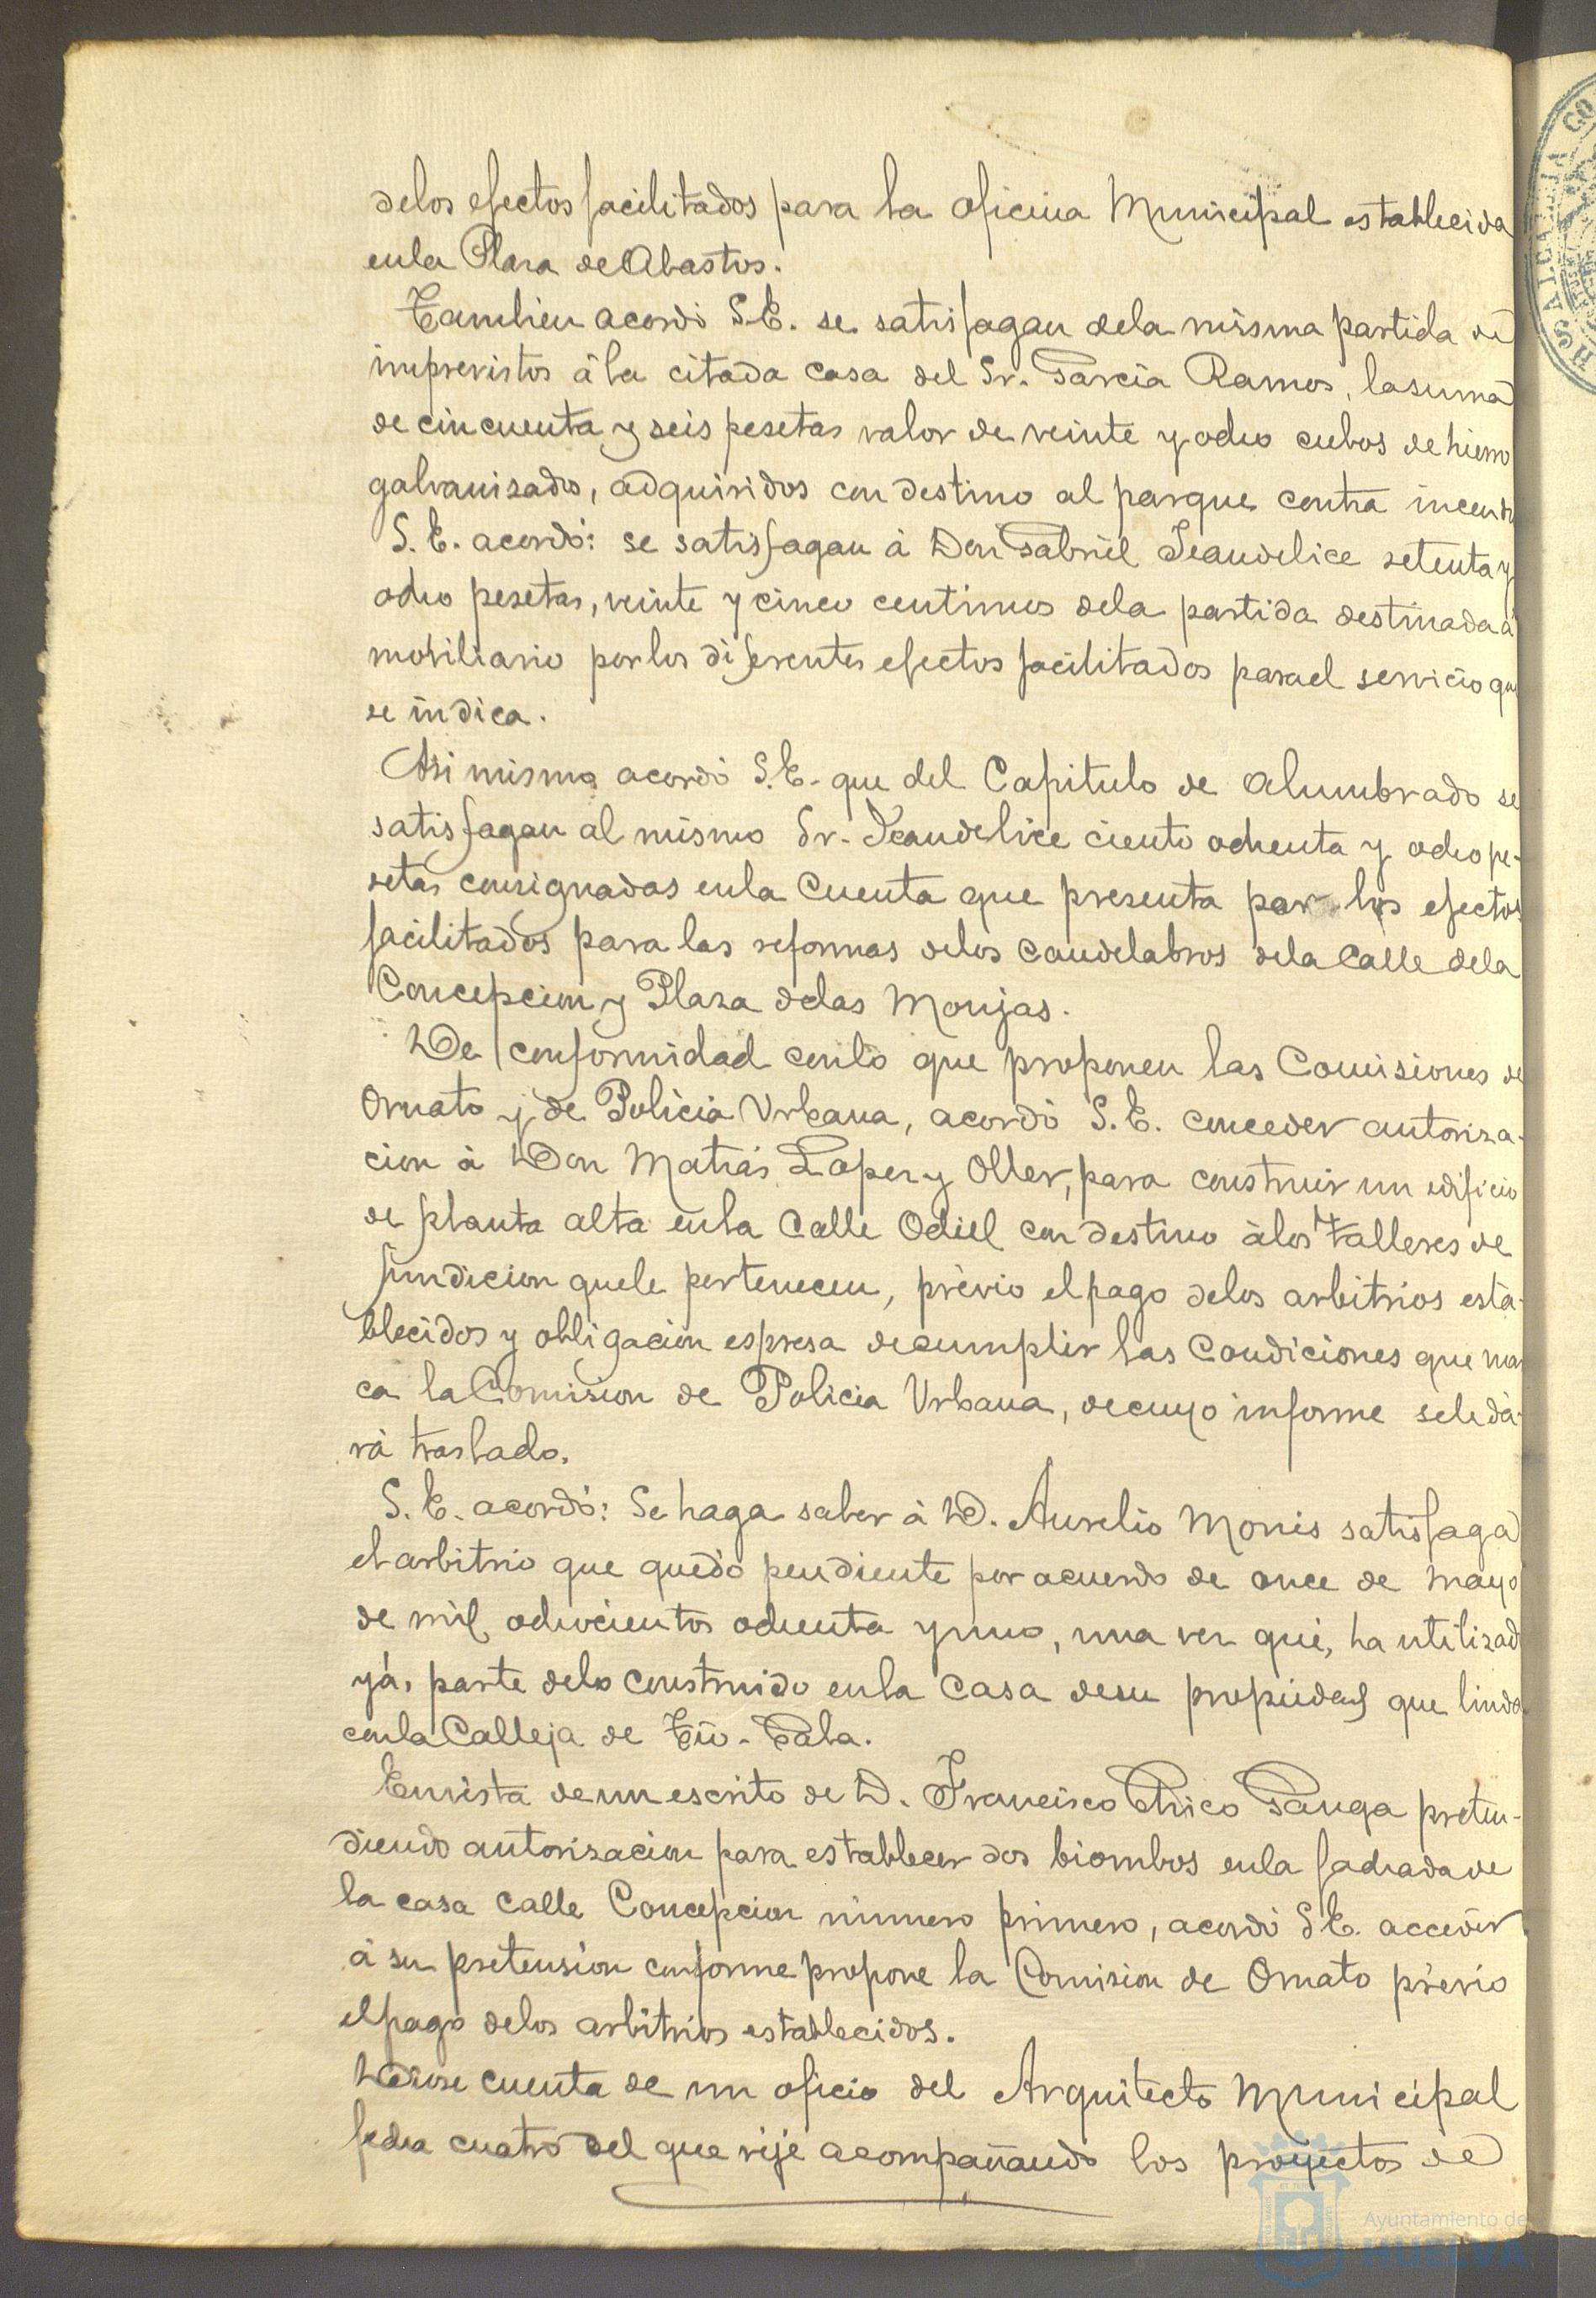 delos efectos facilitados para la oficina Municipal establecida
enla Plaza de Abastos.
Tambien acordó S.E. se satisfagan dela misma partida de
imprevistos á la citada casa del Sr. Garcia Ramos, lasuma
de cincuenta y seis pesetas valor de veinte y ocho cubos de hierro
galvanizados, adquiridos con destino al parque contra incendi
S. E. acordó: se satisfagan á Don Gabriel Jeandelice setenta y
ocho pesetas, veinte y cinco centimos dela partida destinada á
mobiliario por los diferentes efectos facilitados parael servicio que
se indica.
Asi mismo acordó S.E. que del Capitulo de alumbrado se
satisfagan al mismo Sr. Jeandelice ciento ochenta y ocho pe-
setas consignadas enla Cuenta que presenta por los efectos
facilitados para las reformas delos Candelabros dela Calle dela
Concepcion y Plaza delas Monjas.
De conformidad conlo que proponen las Comisiones de
Ornato y de Policia Urbana, acordó S. E. conceder autoriza-
cion á Don Matias Lopez y Oller, para construir un edificio
de planta alta enla Calle Odiel con destino álos talleres de
fundicion quele pertenecen, prévio elpago delos arbitrios está-
blecidos y obligacion espresa decumplir las Condiciones que mar
ca la Comision de Policia Urbana, decuyo informe sele dá-
rá traslado.
S. E. acordó: Se haga saber á D. Aurelio Monis satisfaga
el arbitrio que quedó pendiente por acuerdo de once de mayo
de mil ochocientos ochenta yuno, una vez que, ha utilizad
yá, parte delo construido enla Casa desu propiedad que linda
conla Calleja de Tio-Pala.
Envista de un escrito de D. Francisco Chico Ganga preten-
diendo autorizacion para establecer dos biombos enla fachada de
la casa Calle Concepcion número primero, acordó S.E. acceder
á su pretension conforme propone la Comision de Ornato prévio
elpago delos arbitrios establecidos.
Diose cuenta de un oficio del Arquitecto Municipal
fecha cuatro del que rije acompañando los proyectos de
Ayuntamiento de
HUELVA